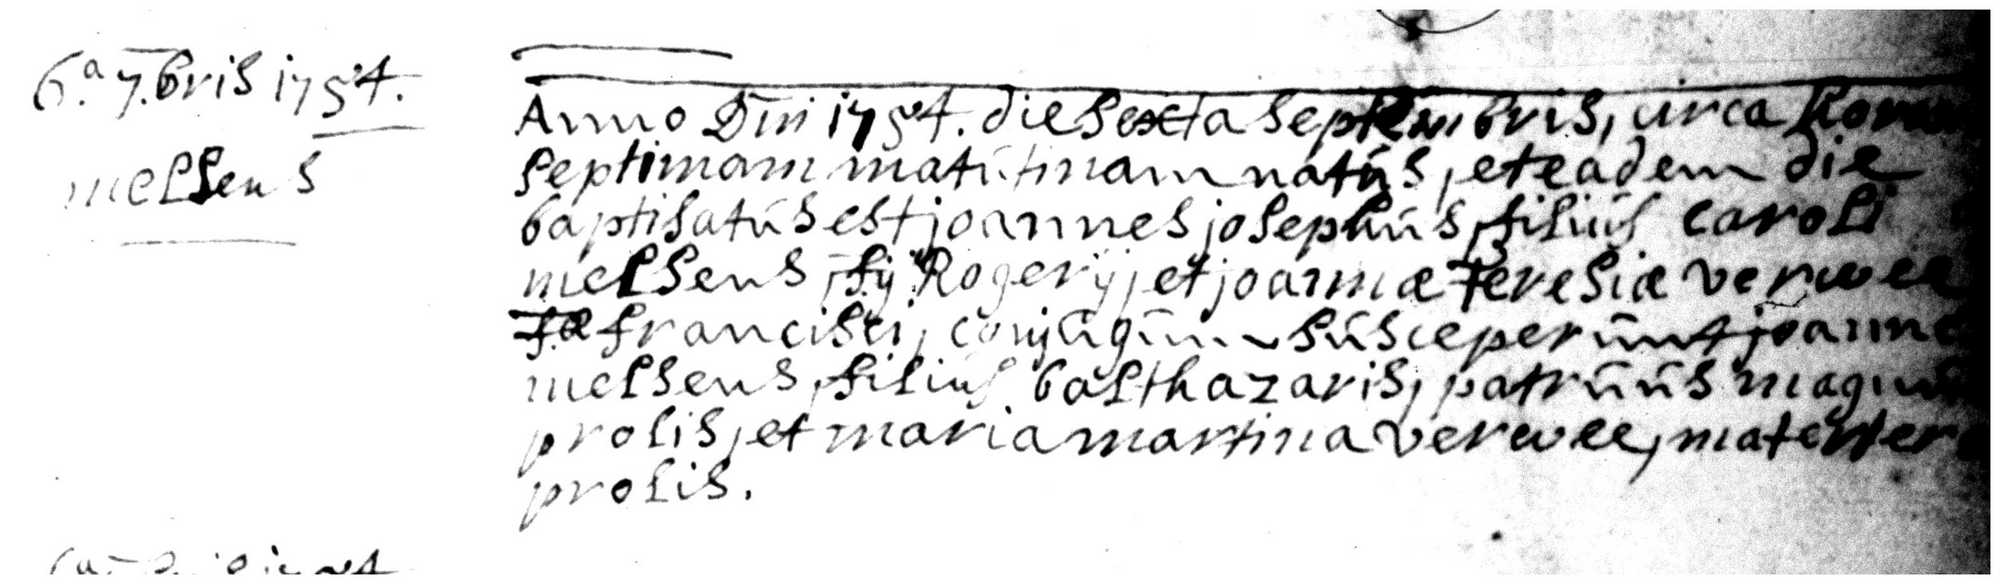 6.a 7.bris 1754.
melsens
Anno Dni 1754. die sexta septembris, circa horam
septimam matutinam natus, et eadem die
baptisatus est joannes josephus, filius caroli
melsens, fij Rogerij, et joannæ teresiæ verwee
f.æ francisci, conjugum susceperunt joannes
melsens, filius balthazaris, patruus magnus
prolis, et maria martina verwee, matertera
prolis.